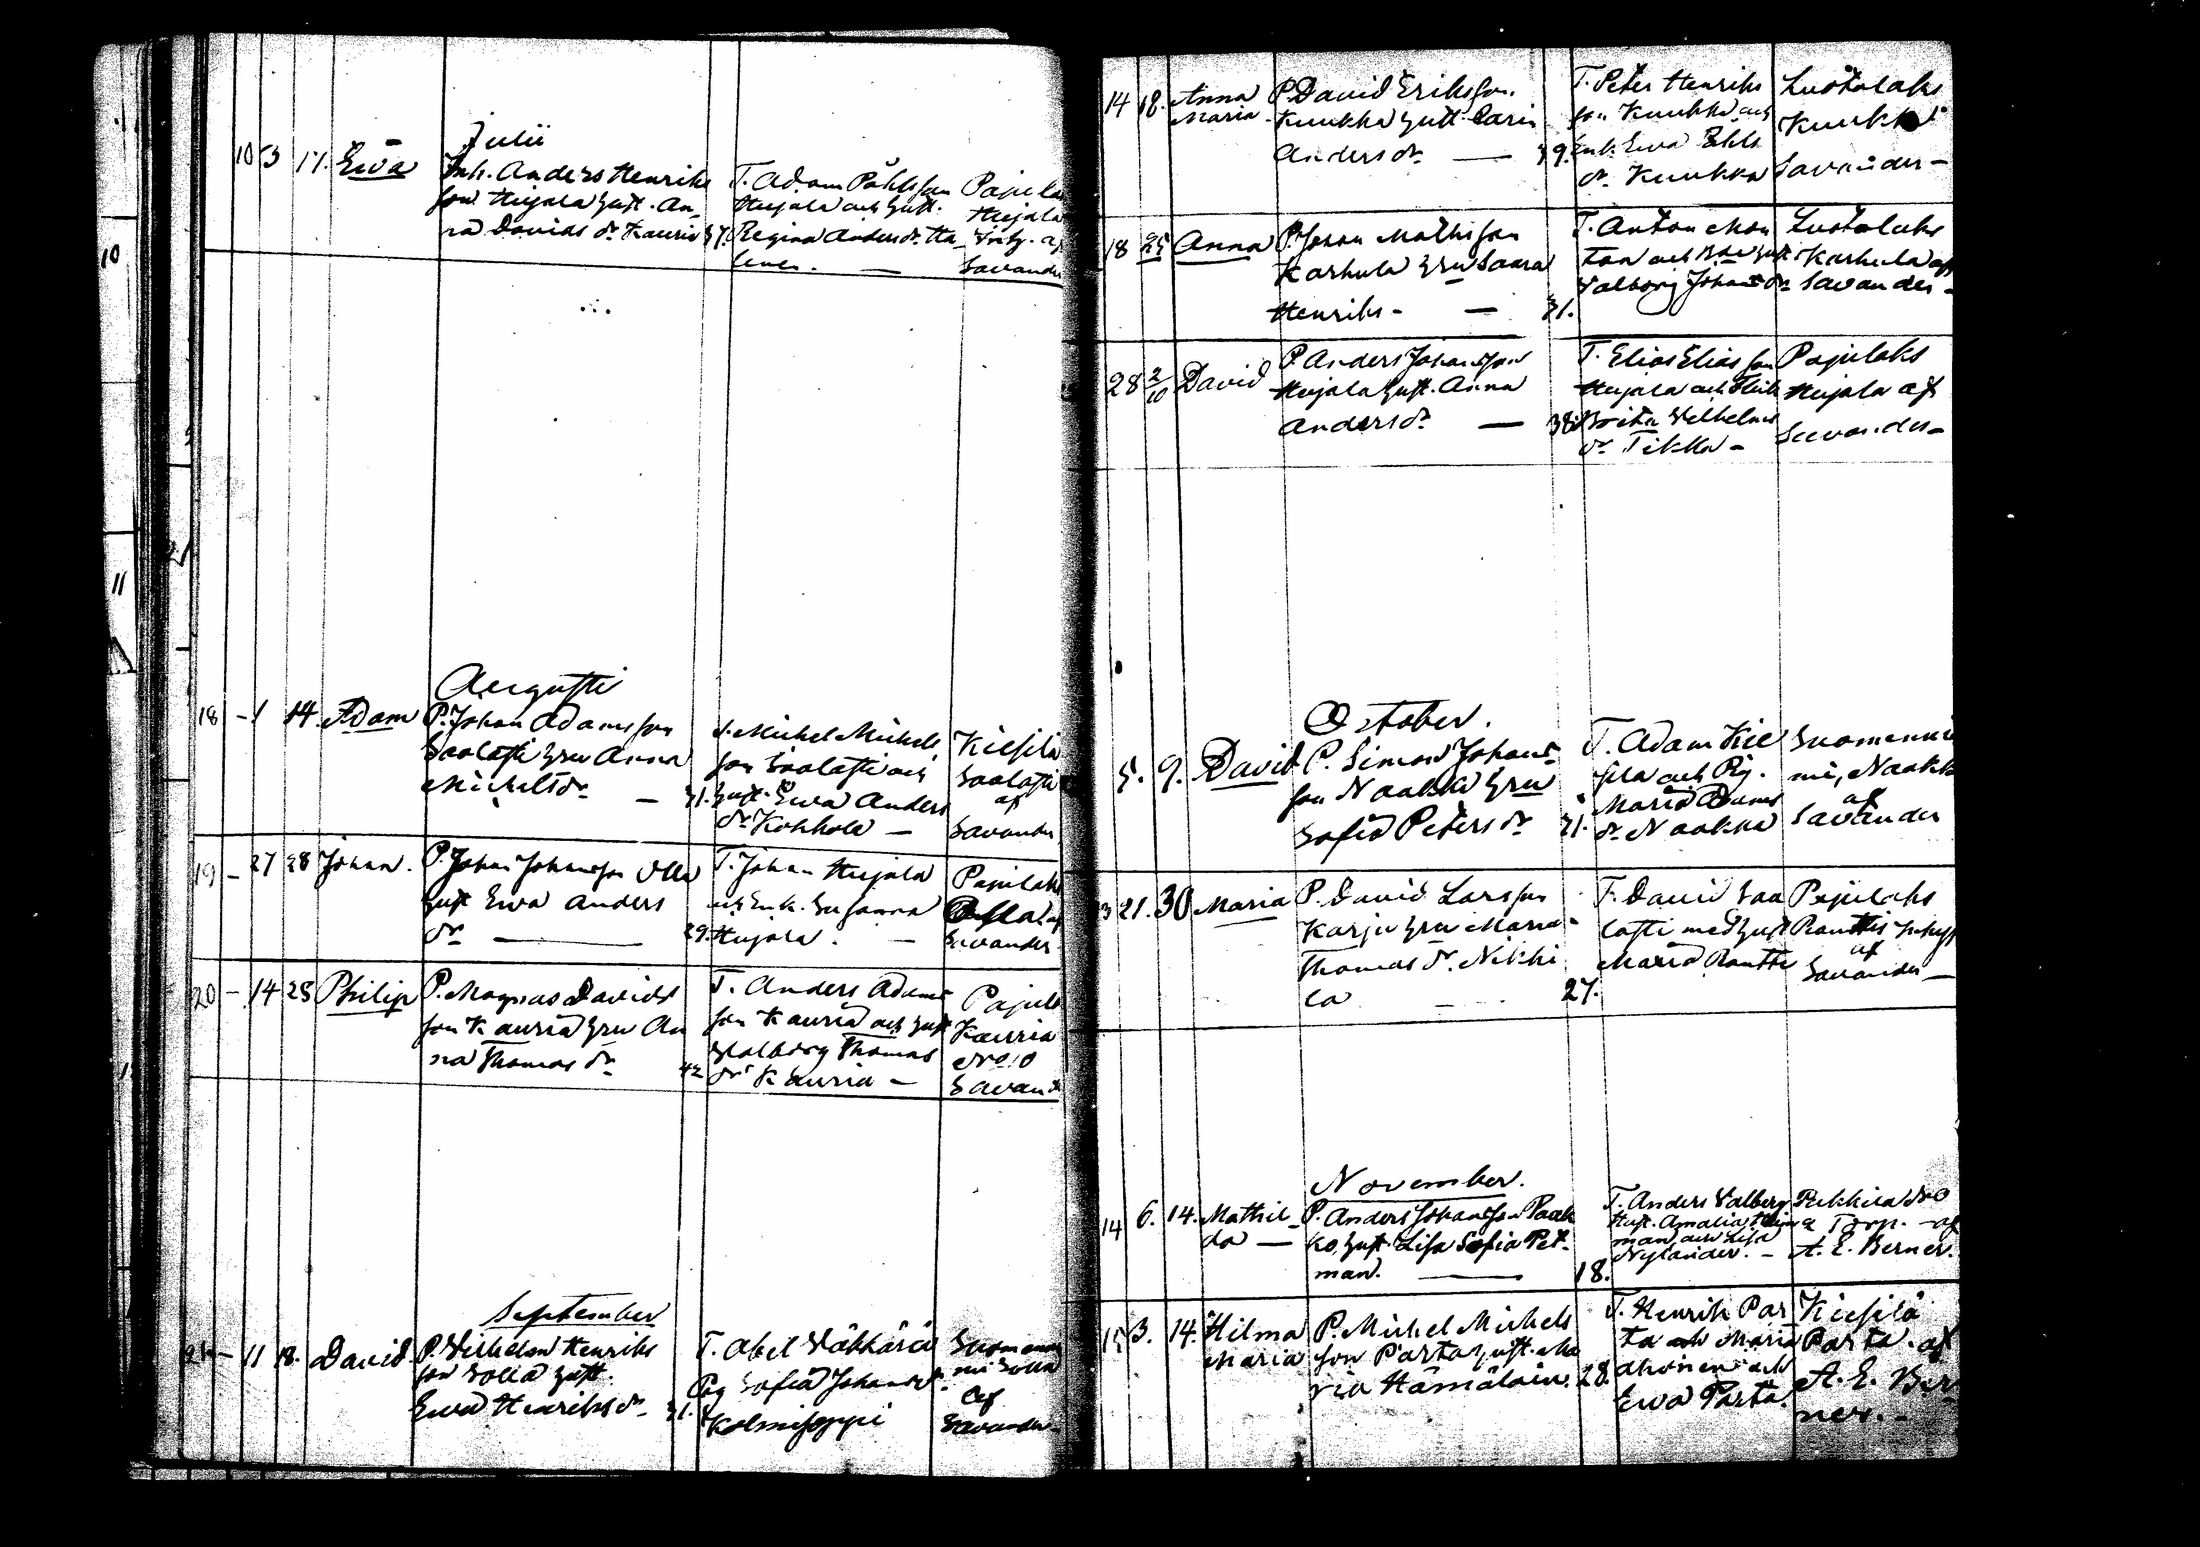 Julii
10 3 17. Ewa
Inh. Anders Henriks
son Hujala hust. An
na Davids dr Kauria 37.
T. Adam Påhlsson
Hujala och hust.
Regina Anders dr Ha
Pajula
Hujala
Savander
Augusti
18 - 1 14. Adam
P. Johan Adamsson
Saolasti hru Anna
Michelsdr — 31.
T. Michel Michels
son Saolasti och
hust. Ewa Anders
dr Kokkola —
Kiesilä
Saolasti
af
Savander
19 - 27 28 Johan.
P. Johan Johansson Olla
hust Ewa Anders
dr — 29.
T. Johan Hujala
och Enk. Susanna
Hujala. —
Pajulaks
Savander
20 - 14 25 Philip
P. Magnus Davids
son Kauria hru An
na Thomas dr 42
T. Anders Adams
son Kauria och hust
Walborg Thomas
dr Kauria —
Pajula
Kauria
No 10
Savand
September
21 - 11 18. David
P. Wilhelm Henriks
son Solla hust.
Ewa Henriks dr 31.
T. Abel Väkkärä
Pig Sofia Johans dr
Kolmisoppi
Suomenni
mi Solla
af
Savander
14 18. Anna
Maria
P. David Eriksson
Kuukka hust. Carin
Anders dr — 39.
T. Peter Henriks
son Kuukka och
Enk. Ewa
dr Kuukka
Luotolaks
Kuukka
Savander -
18 25 Anna
P. Johan Mathsson
Karhula hru Saara
Henriks - — 31.
T. Anton Mon
ton och hust
Walborg Johans dr
Luotolaks
Karhula af
Savander -
28 2/10 David
P. Anders Johansson
Hujala hust. Anna
Anders dr — 38.
T. Elias Elias son
Hujala och
Brita Wilhelms
dr Tikka -
Pajulaks
Hujala af
Savander -
October.
5. 9. David
P. Simon Johans
son Naakka hru
Sofia Peters dr 21.
T. Adam Kie
sila och Pig.
Maria Adams
dr Naakka
Suomenni
mi, Naakk
af
Savander
21. 30 Maria
P. David Larsson
Karju hru Maria
Thomas dr. Nikki
la 27.
T. David Saa
lasti med hust
Maria Rantti
Pajulaks
Ranttis
af
Savander —
November.
14 6. 14. Mathil
da —
P. Anders Johansson Paak
ko hust. Lisa Sofia Pet-
man. — 18.
T. Anders Valberg
Hust. Amalia
man och Lisa
Nylander. -
Pekkila No
2 Torp. af
A. E. Berner.
15 3. 14. Hilma
Maria
P. Michel Michels
son Parta hust. Ma
ria Hämäläin. 28.
T. Henrik Par
ta och Maria
Ahonen och
Ewa Parta.
Kiesilä
Parta. af
A. E. Ber
ner. -